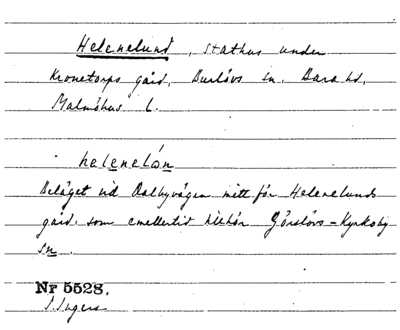 Helenelund, stathus under
Kronetorps gård, Burlövs sn. Bara hd,
Malmöhus l.
helenelán
Beläget vid Dalbyvägen mitt för Helenelunds
gård, som emellertid tillhör Görslövs-Kyrkoby
sn.
Nr 5528.
J. Ingers